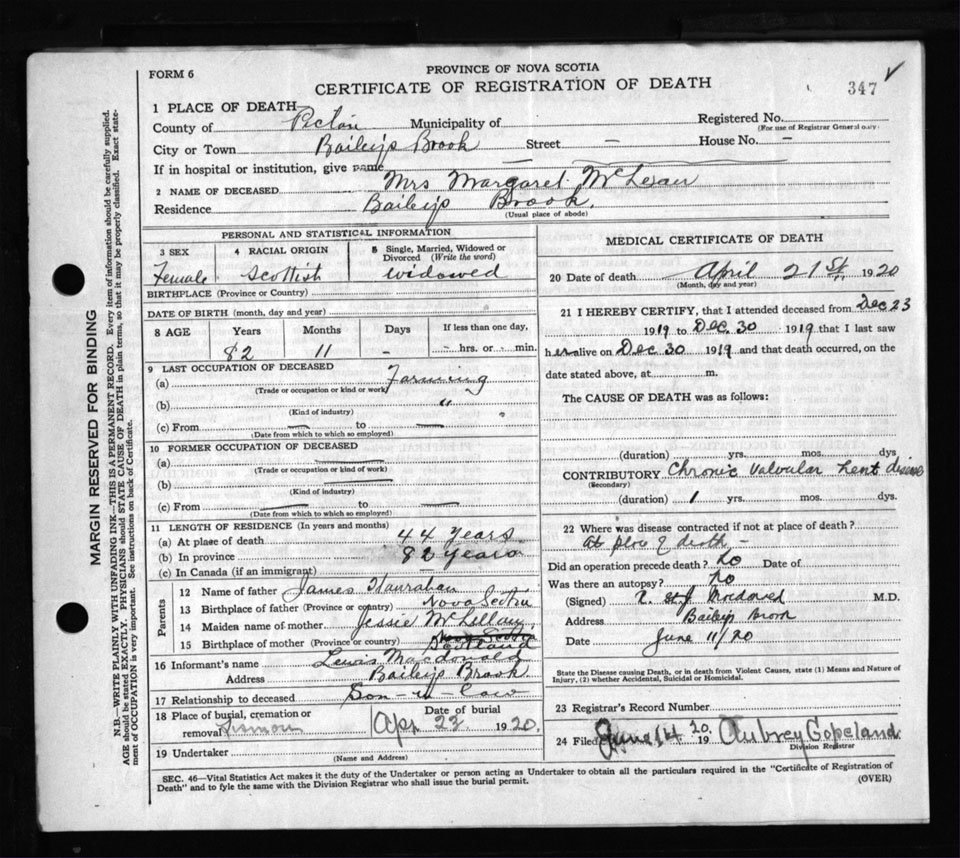 PROVINCE OF NOVA SCOTIA
FORM 6
CERTIFICATE OF REGISTRATION OF DEATH
347
1 PLACE OF DEATH
County of Pictou Municipality of Registered No.
(For use of Registrar General only.)
City or Town Baileys Brook Street — House No. —
If in hospital or institution, give name —
2 NAME OF DECEASED Mrs Margaret McLean
Residence Baileys Brook.
(Usual place of abode)
PERSONAL AND STATISTICAL INFORMATION
3 SEX Female
4 RACIAL ORIGIN Scottish
5 Single, Married, Widowed or Divorced (Write the word) widowed
BIRTHPLACE (Province or Country)
DATE OF BIRTH (month, day and year)
8 AGE Years Months Days If less than one day,
82 11 - - hrs. or - min.
9 LAST OCCUPATION OF DECEASED
(a) Farming
(Trade or occupation or kind of work)
(b) "
(Kind of industry)
(c) From — to —
(Date from which to which so employed)
10 FORMER OCCUPATION OF DECEASED
(a) —
(Trade or occupation or kind of work)
(b) —
(Kind of industry)
(c) From — to —
(Date from which to which so employed)
11 LENGTH OF RESIDENCE (In years and months)
(a) At place of death 44 years.
(b) In province 82 years
(c) In Canada (if an immigrant)
Parents
12 Name of father James Hanrahan
13 Birthplace of father (Province or country) Nova Scotia
14 Maiden name of mother Jessie McLellan
15 Birthplace of mother (Province or country) Nova Scotia Scotland
16 Informant's name Lewis Macdonald
Address Baileys Brook
17 Relationship to deceased Son-in-law
18 Place of burial, cremation or removal Date of burial
Apr. 23 1920.
19 Undertaker
(Name and Address)
MEDICAL CERTIFICATE OF DEATH
20 Date of death April 21st, 1920
(Month, day and year)
21 I HEREBY CERTIFY, that I attended deceased from Dec 23
1919 to Dec 30 1919 that I last saw
her alive on Dec 30 1919 and that death occurred, on the
date stated above, at m.
The CAUSE OF DEATH was as follows:
(duration) yrs. mos. dys
CONTRIBUTORY Chronic Valvular heart disease
(Secondary)
(duration) 1 yrs. mos. dys.
22 Where was disease contracted if not at place of death?
At place of death -
Did an operation precede death? No Date of
Was there an autopsy? No
(Signed) Macdonald M.D.
Address Baileys Brook
Date June 11/20
State the Disease causing Death, or in death from Violent Causes, state (1) Means and Nature of
Injury, (2) whether Accidental, Suicidal or Homicidal.
23 Registrar's Record Number
24 Filed June 14 1920. Aubrey Copeland.
Division Registrar
SEC. 46—Vital Statistics Act makes it the duty of the Undertaker or person acting as Undertaker to obtain all the particulars required in the "Certificate of Registration of
Death" and to fyle the same with the Division Registrar who shall issue the burial permit.
(OVER)
MARGIN RESERVED FOR BINDING
N.B.—WRITE PLAINLY WITH UNFADING INK—THIS IS A PERMANENT RECORD. Every item of information should be carefully supplied.
AGE should be stated EXACTLY. PHYSICIANS should STATE CAUSE OF DEATH in plain terms, so that it may be properly classified. Exact state-
ment of OCCUPATION is very important. See instructions on back of Certificate.